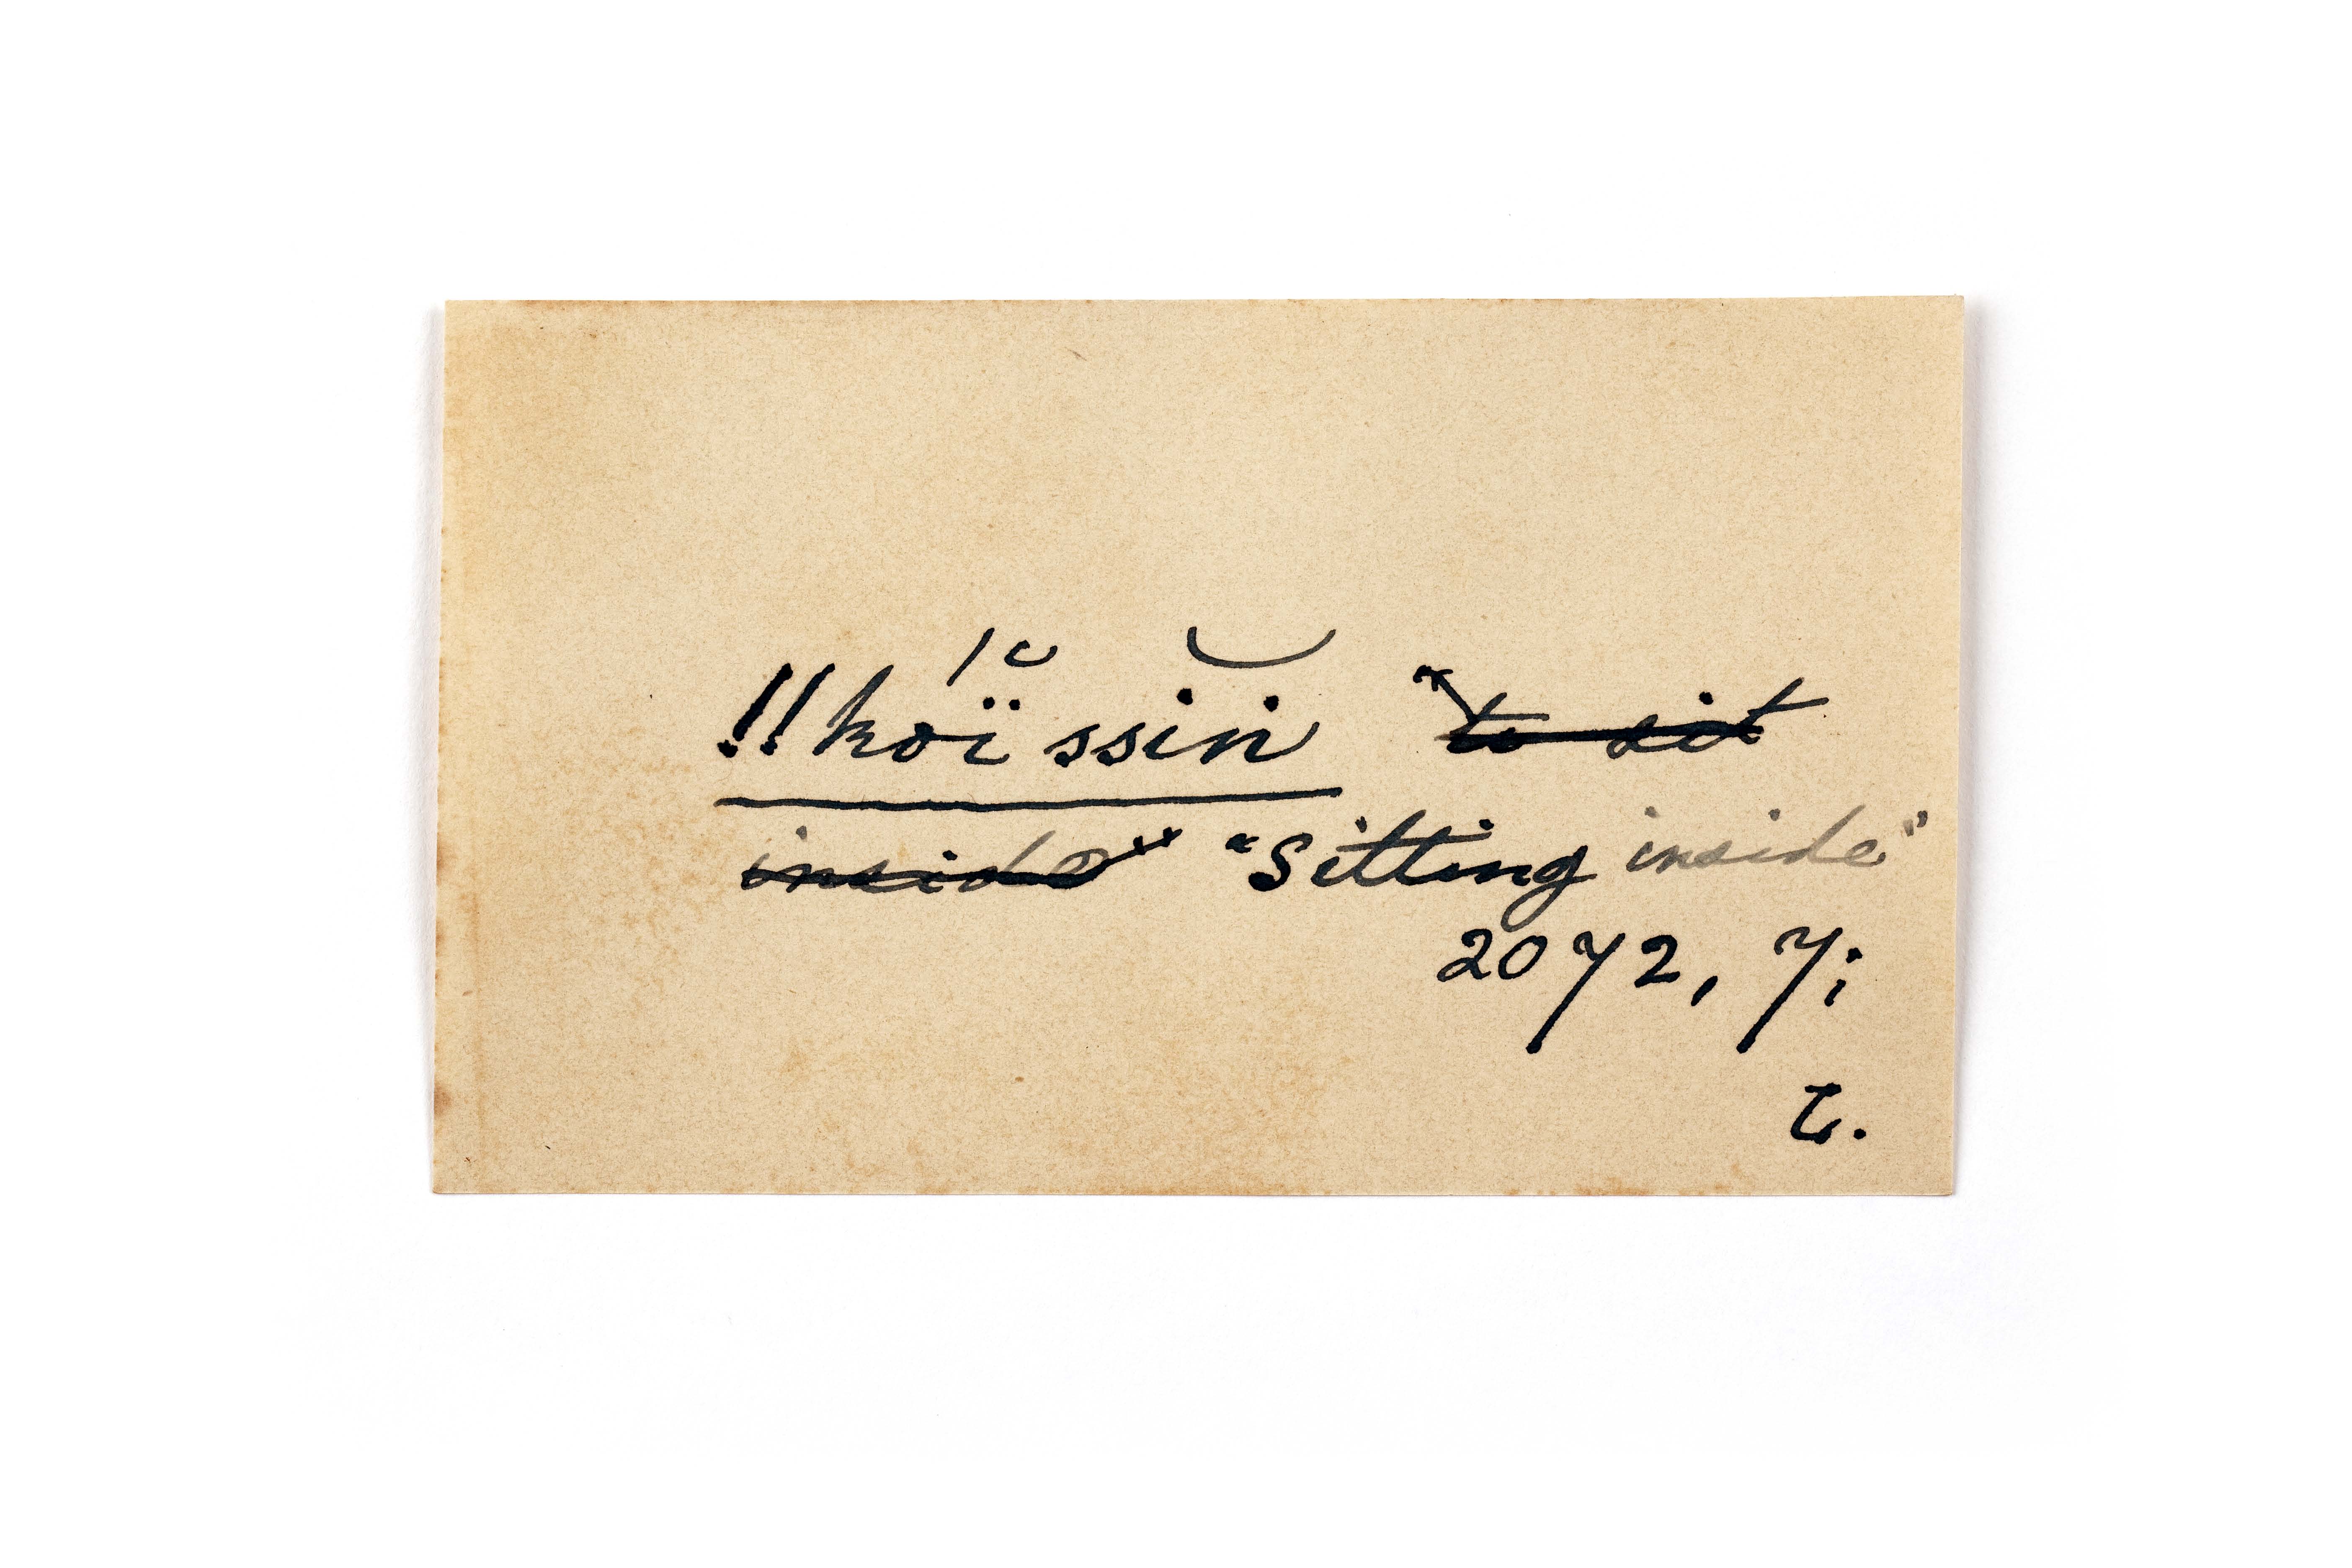 !!kóï̆ ssin̆ ~~"to sit~~
~~inside"~~ "Sitting inside"
2072, 7;
t.